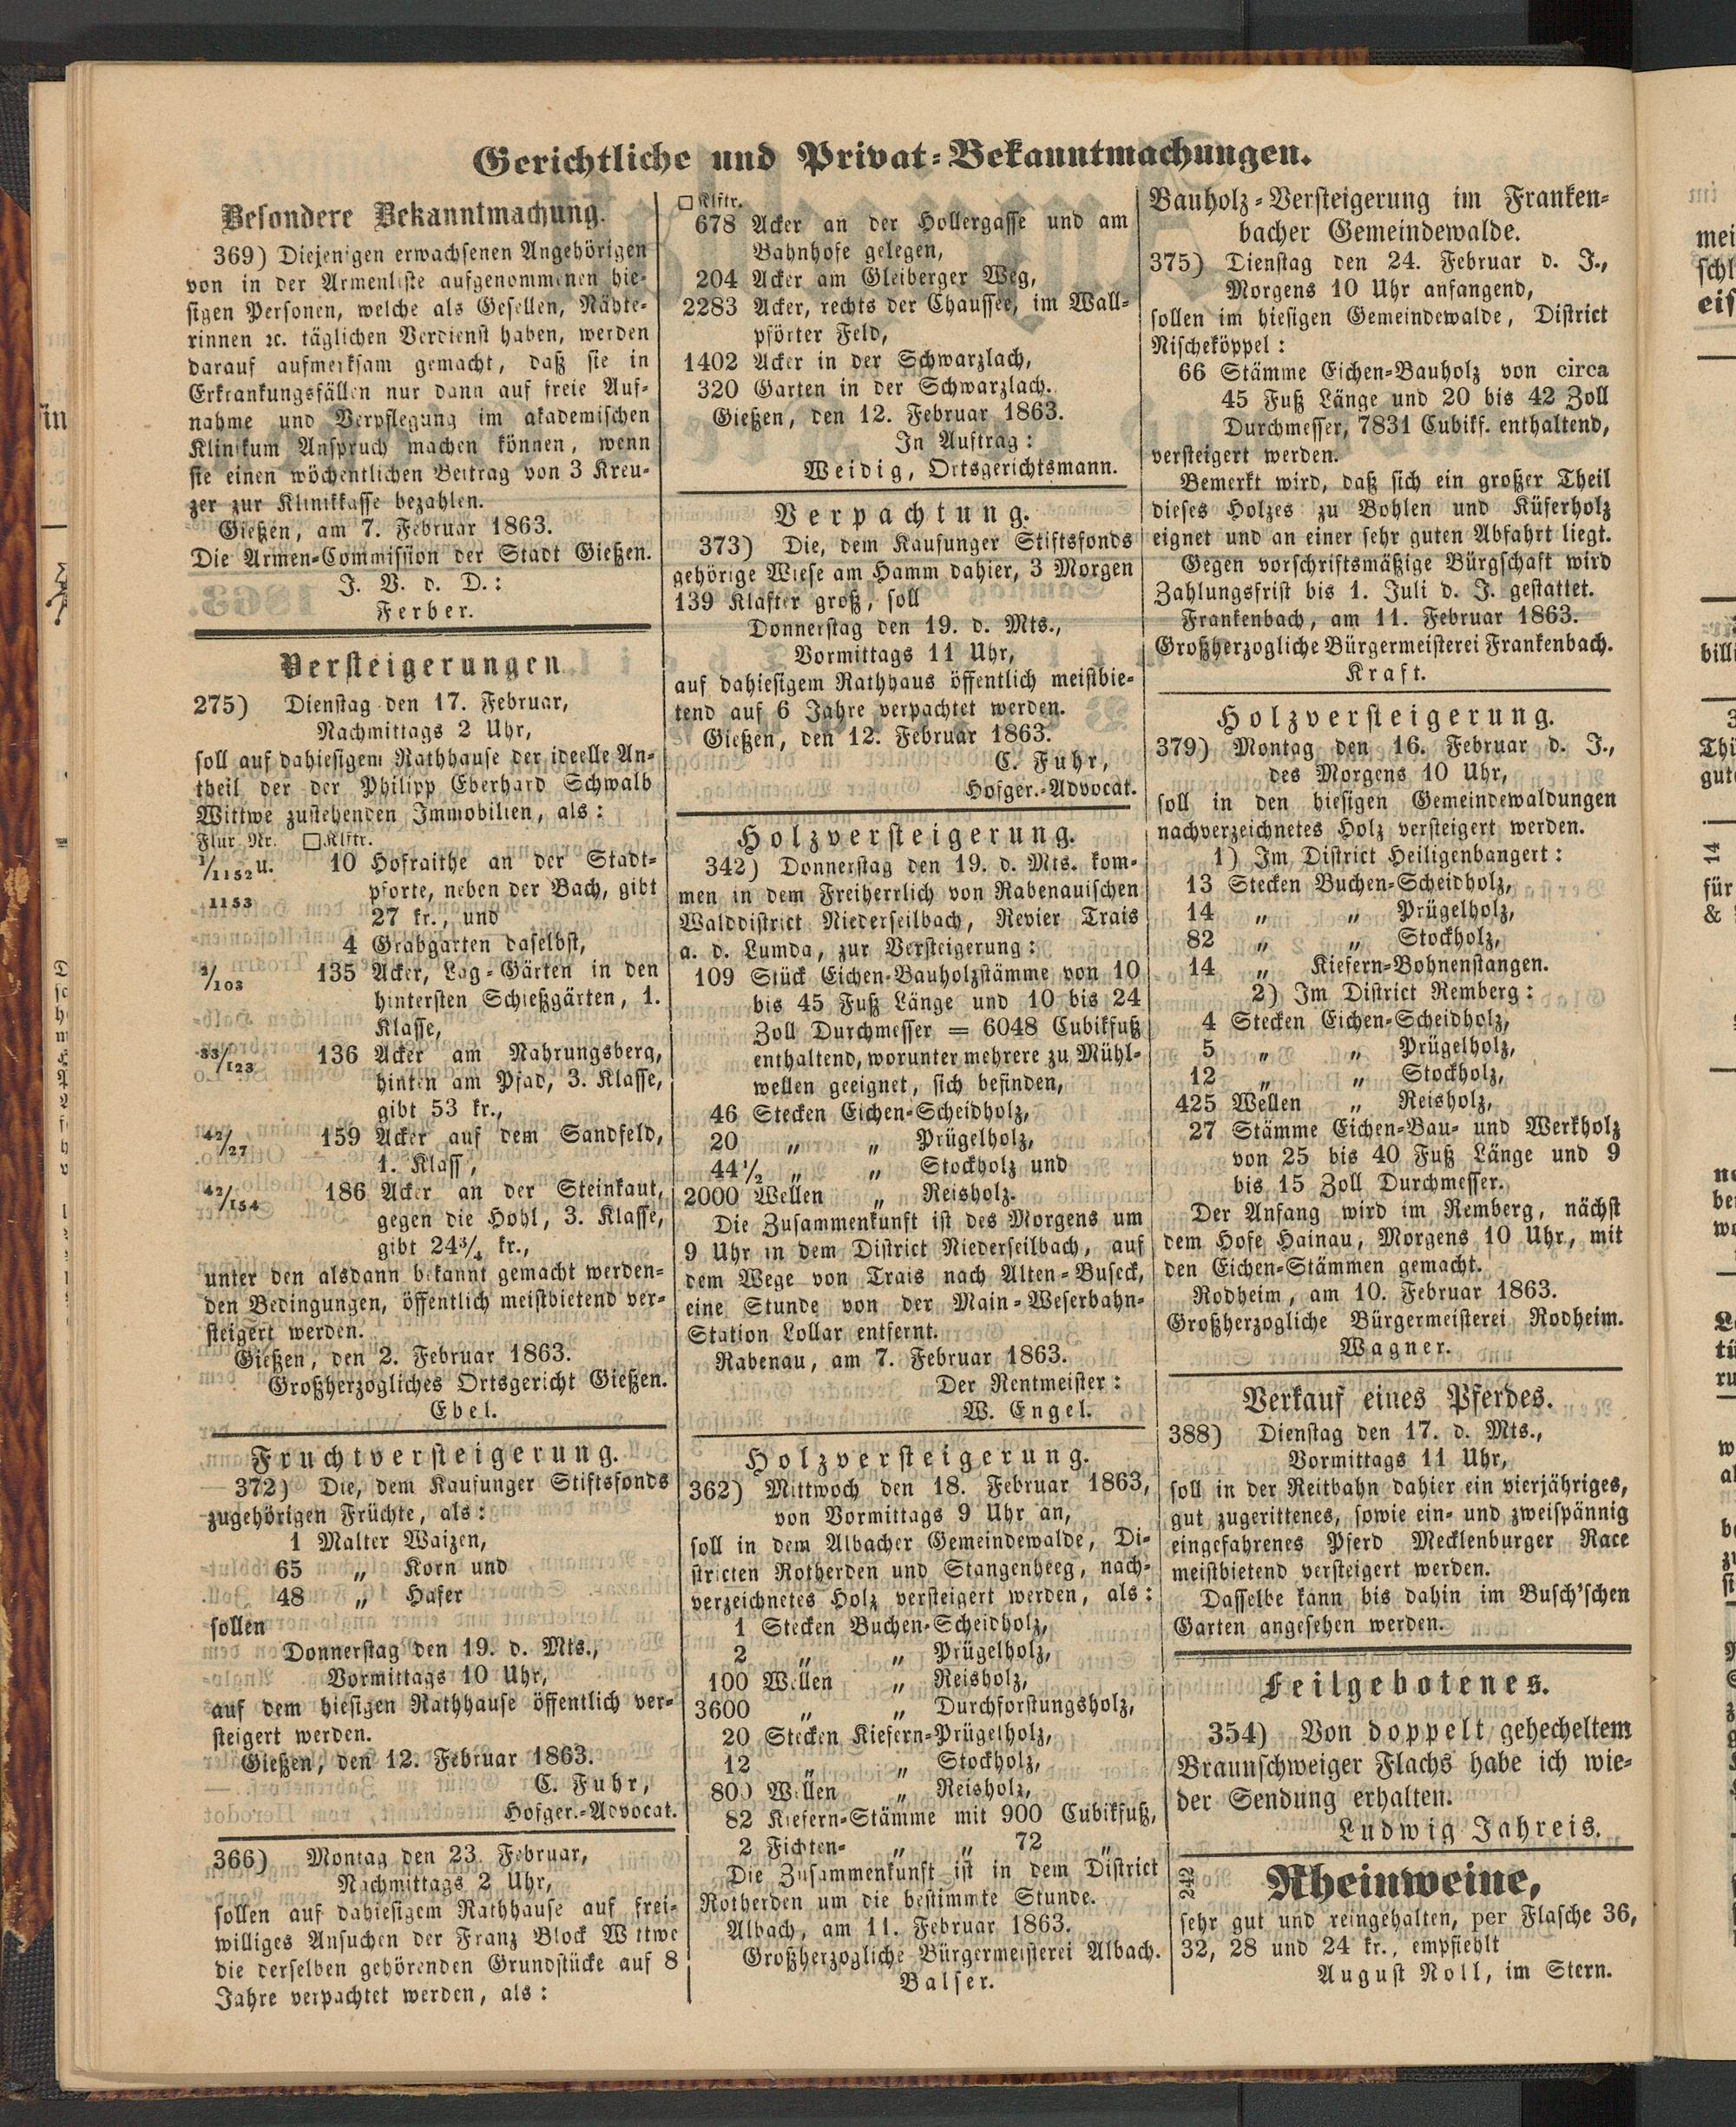 Gerichtliche und Privat-Bekanntmachungen.
Besondere Bekanntmachung.
369) Diejenigen erwachsenen Angehörigen
von in der Armenliste aufgenommenen hie-
sigen Personen, welche als Gesellen, Nähte-
rinnen ꝛc. täglichen Verdienst haben, werden
darauf aufmerksam gemacht, daß sie in
Erkrankungsfällen nur dann auf freie Auf-
nahme und Verpflegung im akademischen
Klinikum Anspruch machen können, wenn
sie einen wöchentlichen Beitrag von 3 Kreu-
zer zur Klinikkasse bezahlen.
Gießen, am 7. Februar 1863.
Die Armen-Commission der Stadt Gießen.
J. V. d. D.:
Ferber.
Versteigerungen
275) Dienstag den 17. Februar,
Nachmittags 2 Uhr,
soll auf dahiesigem Rathhause der ideelle An-
theil der der Philipp Eberhard Schwalb
Wittwe zustehenden Immobilien, als:
Flur Nr. □Klftr.
1/1152 u. 10 Hofraithe an der Stadt-
1153 pforte, neben der Bach, gibt
27 kr., und
4 Grabgarten daselbst,
2/103 135 Acker, Lag-Gärten in den
hintersten Schießgärten, 1.
Klasse,
33/123 136 Acker am Nahrungsberg,
hinten am Pfad, 3. Klasse,
gibt 53 kr.,
42/27 159 Acker auf dem Sandfeld,
1. Klass,
42/154 186 Acker an der Steinkaut,
gegen die Hohl, 3. Klasse,
gibt 24¾ kr.,
unter den alsdann bekannt gemacht werden-
den Bedingungen, öffentlich meistbietend ver-
steigert werden.
Gießen, den 2. Februar 1863.
Großherzogliches Ortsgericht Gießen.
Ebel.
Fruchtversteigerung.
372) Die, dem Kaufunger Stiftsfonds
zugehörigen Früchte, als:
1 Malter Waizen,
65 „ Korn und
48 „ Hafer
sollen
Donnerstag den 19. d. Mts.,
Vormittags 10 Uhr,
auf dem hiesigen Rathhause öffentlich ver-
steigert werden.
Gießen, den 12. Februar 1863.
C. Fuhr,
Hofger.-Advocat.
366) Montag den 23. Februar,
Nachmittags 2 Uhr,
sollen auf dahiesigem Rathhause auf frei-
williges Ansuchen der Franz Block Wittwe
die derselben gehörenden Grundstücke auf 8
Jahre verpachtet werden, als:
□Klftr.
678 Acker an der Hollergasse und am
Bahnhofe gelegen,
204 Acker am Gleiberger Weg,
2283 Acker, rechts der Chaussee, im Wall-
pförter Feld,
1402 Acker in der Schwarzlach,
320 Garten in der Schwarzlach.
Gießen, den 12. Februar 1863.
In Auftrag:
Weidig, Ortsgerichtsmann.
Verpachtung.
373) Die, dem Kaufunger Stiftsfonds
gehörige Wiese am Hamm dahier, 3 Morgen
139 Klafter groß, soll
Donnerstag den 19. d. Mts.,
Vormittags 11 Uhr,
auf dahiesigem Rathhaus öffentlich meistbie-
tend auf 6 Jahre verpachtet werden.
Gießen, den 12. Februar 1863.
C. Fuhr,
Hofger.-Advocat.
Holzversteigerung.
342) Donnerstag den 19. d. Mts. kom-
men in dem Freiherrlich von Rabenauischen
Walddistrict Niederseilbach, Revier Trais
a. d. Lumda, zur Versteigerung:
109 Stück Eichen-Bauholzstämme von 10
bis 45 Fuß Länge und 10 bis 24
Zoll Durchmesser = 6048 Cubikfuß
enthaltend, worunter mehrere zu Mühl-
wellen geeignet, sich befinden,
46 Stecken Eichen-Scheidholz,
20 „ „ Prügelholz,
44½ „ „ Stockholz und
2000 Wellen „ Reisholz.
Die Zusammenkunft ist des Morgens um
9 Uhr in dem District Niederseilbach, auf
dem Wege von Trais nach Alten-Buseck,
eine Stunde von der Main-Weserbahn-
Station Lollar entfernt.
Rabenau, am 7. Februar 1863.
Der Rentmeister:
W. Engel.
Holzversteigerung.
362) Mittwoch den 18. Februar 1863,
von Vormittags 9 Uhr an,
soll in dem Albacher Gemeindewalde, Di-
stricten Rotherden und Stangenheeg, nach-
verzeichnetes Holz versteigert werden, als:
1 Stecken Buchen-Scheidholz,
2 „ „ Prügelholz,
100 Wellen „ Reisholz,
3600 „ „ Durchforstungsholz,
20 Stecken Kiefern-Prügelholz,
12 „ „ Stockholz,
800 Wellen „ Reisholz,
82 Kiefern-Stämme mit 900 Cubikfuß,
2 Fichten- „ „ 72 „
Die Zusammenkunft ist in dem District
Rotherden um die bestimmte Stunde.
Albach, am 11. Februar 1863.
Großherzogliche Bürgermeisterei Albach.
Balser.
Bauholz-Versteigerung im Franken-
bacher Gemeindewalde.
375) Dienstag den 24. Februar d. J.,
Morgens 10 Uhr anfangend,
sollen im hiesigen Gemeindewalde, District
Nischeköppel:
66 Stämme Eichen-Bauholz von circa
45 Fuß Länge und 20 bis 42 Zoll
Durchmesser, 7831 Cubikf. enthaltend,
versteigert werden.
Bemerkt wird, daß sich ein großer Theil
dieses Holzes zu Bohlen und Küferholz
eignet und an einer sehr guten Abfahrt liegt.
Gegen vorschriftsmäßige Bürgschaft wird
Zahlungsfrist bis 1. Juli d. J. gestattet.
Frankenbach, am 11. Februar 1863.
Großherzogliche Bürgermeisterei Frankenbach.
Kraft.
Holzversteigerung.
379) Montag den 16. Februar d. J.,
des Morgens 10 Uhr,
soll in den hiesigen Gemeindewaldungen
nachverzeichnetes Holz versteigert werden.
1) Im District Heiligenbangert:
13 Stecken Buchen-Scheidholz,
14 „ „ Prügelholz,
82 „ „ Stockholz,
14 „ Kiefern-Bohnenstangen.
2) Im District Remberg:
4 Stecken Eichen-Scheidholz,
5 „ „ Prügelholz,
12 „ „ Stockholz,
425 Wellen „ Reisholz,
27 Stämme Eichen-Bau- und Werkholz
von 25 bis 40 Fuß Länge und 9
bis 15 Zoll Durchmesser.
Der Anfang wird im Remberg, nächst
dem Hofe Hainau, Morgens 10 Uhr, mit
den Eichen-Stämmen gemacht.
Rodheim, am 10. Februar 1863.
Großherzogliche Bürgermeisterei Rodheim.
Wagner.
Verkauf eines Pferdes.
388) Dienstag den 17. d. Mts.,
Vormittags 11 Uhr,
soll in der Reitbahn dahier ein vierjähriges,
gut zugerittenes, sowie ein- und zweispännig
eingefahrenes Pferd Mecklenburger Race
meistbietend versteigert werden.
Dasselbe kann bis dahin im Busch'schen
Garten angesehen werden.
Feilgebotenes.
354) Von doppelt gehecheltem
Braunschweiger Flachs habe ich wie-
der Sendung erhalten.
Ludwig Jahreis.
242
Rheinweine,
sehr gut und reingehalten, per Flasche 36,
32, 28 und 24 kr., empfiehlt
August Noll, im Stern.